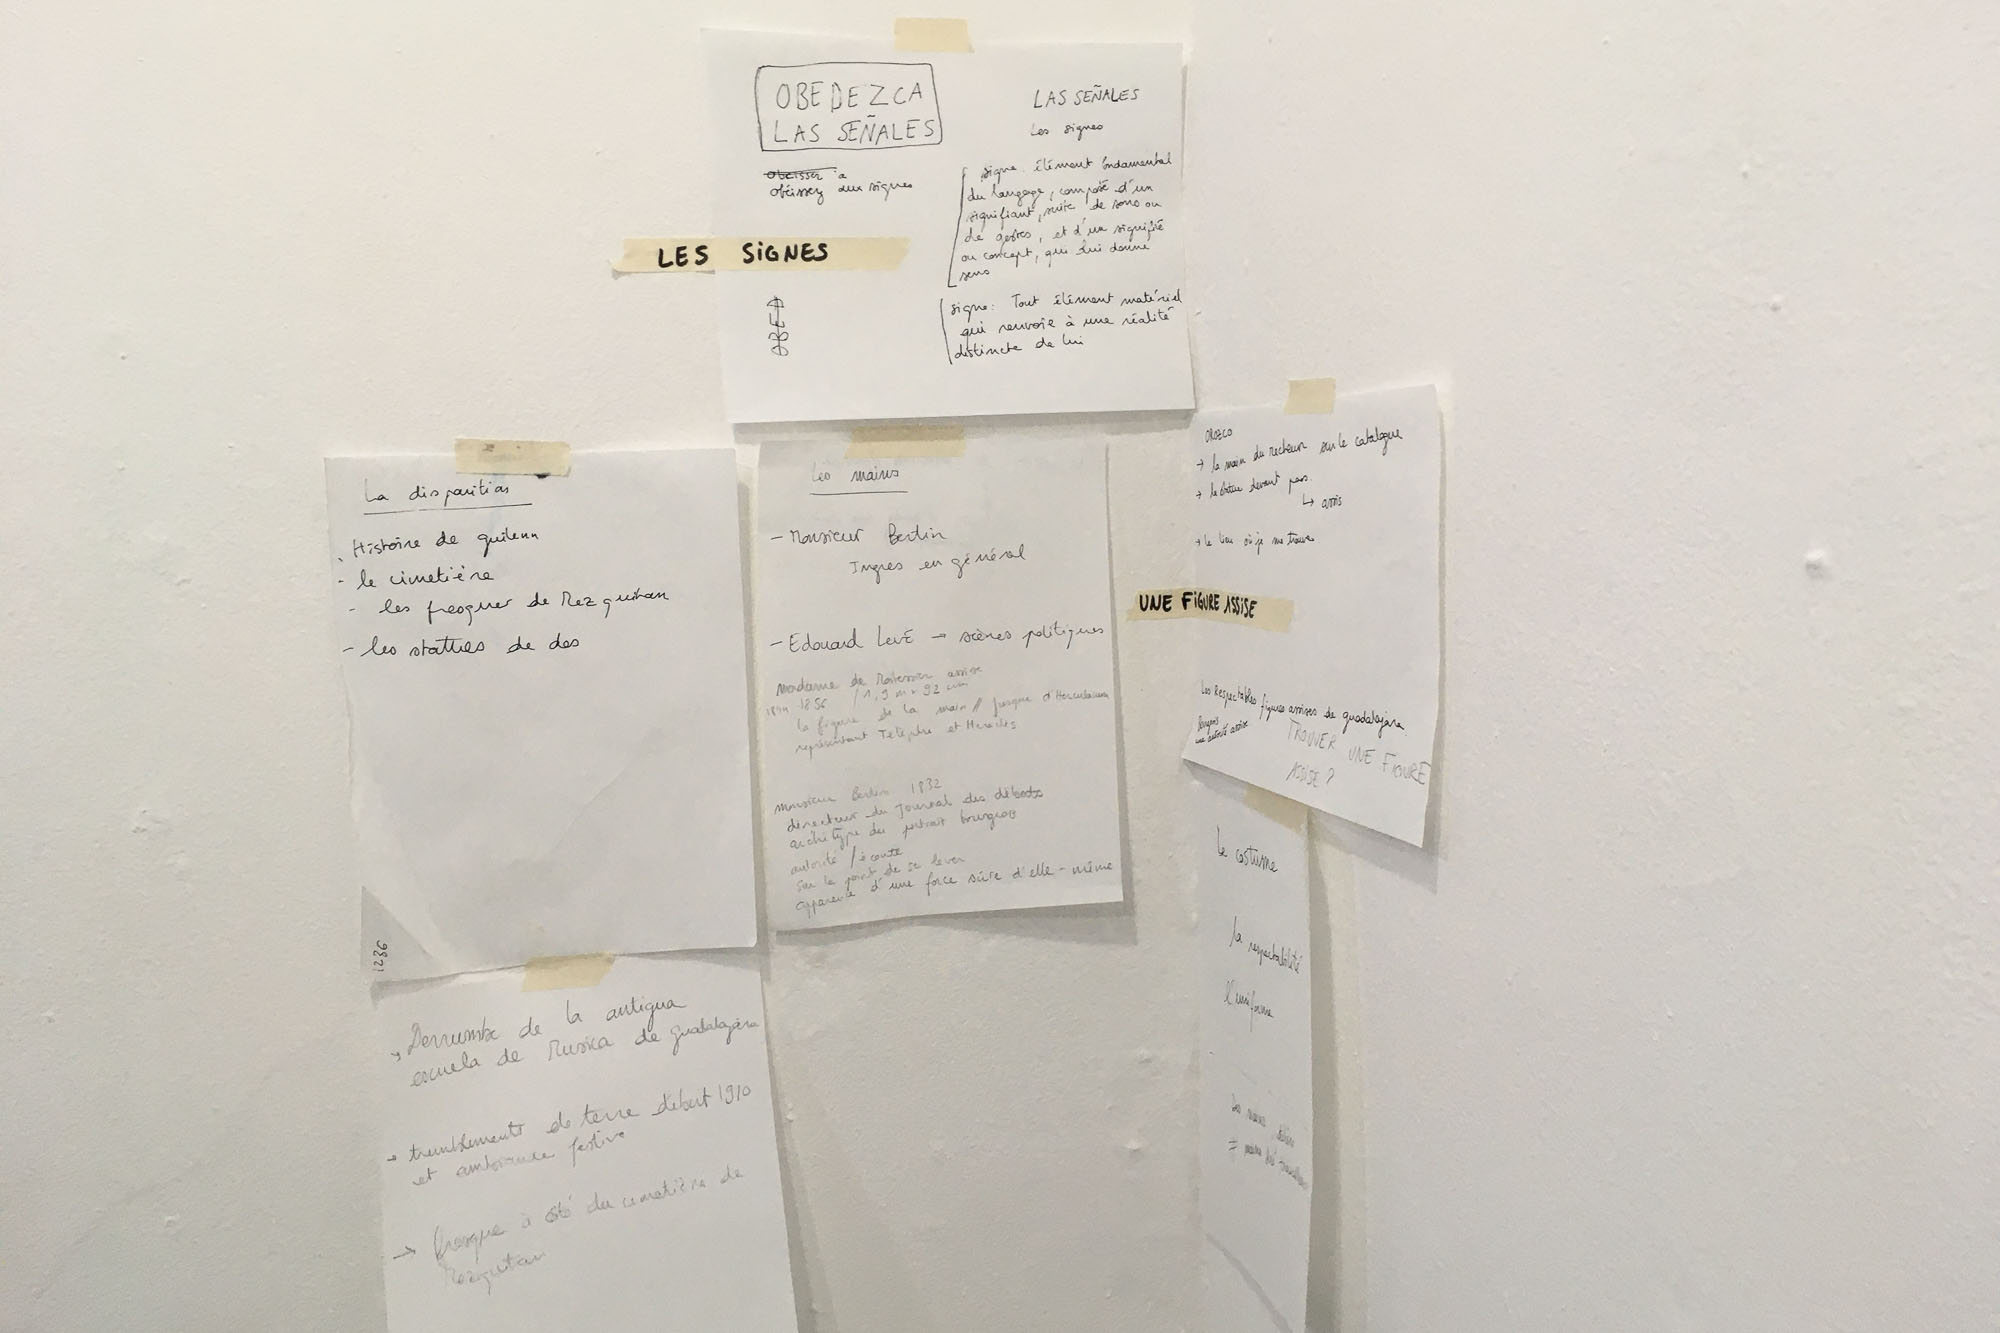 OBEDEZCA
LAS SEÑALES
obéisser à
obéissez aux signes
LAS SEÑALES
Les signes
signe: élément fondamental
du langage, composé d'un
signifiant, suite de sons ou
de gestes, et d'un signifié
ou concept, qui lui donne
sens
signe: Tout élément matériel
qui renvoie à une réalité
distincte de lui
LES SIGNES
OBED
La disparition
Histoire de
- le cimetière
- les de Mezquitan
- les statues de dos
1236
Les mains
- Monsieur Bertin
Ingres en général
- Edouard Levé → scènes politiques
madame de assise
1844-1856 / 1,9 m × 92 cm
la figure de la main // fresque d'Herculanum
représentant Télèphe et Héraclès
monsieur Bertin 1832
directeur du Journal des débats
archétype du portrait bourgeois
autorité / écoute
sur le point de se lever
apparence d'une force sûre d'elle-même
OROZCO
→ la main du recteur sur le catalogue
→ la statue devant
↳ assis
→ le lieu où je me trouve
UNE FIGURE ASSISE
Les respectables figures assises de guadalajara
une autorité assise
TROUVER UNE FIGURE
ASSISE ?
→ Derrumbe de la antigua
escuela de Musica de guadalajara
→ tremblements de terre début 1910
et ambiance festive
→ fresque à côté du cimetière de
Mezquitan
le costume
la respectabilité
l'uniforme